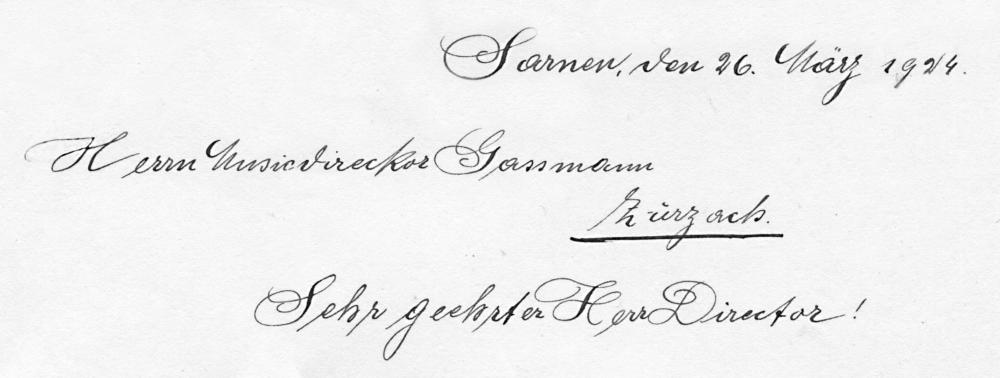 Sarnen, den 26. März 1924.
Herrn Musicdireckor Gassmann
Zurzach.
Sehr geehrter Herr Director!